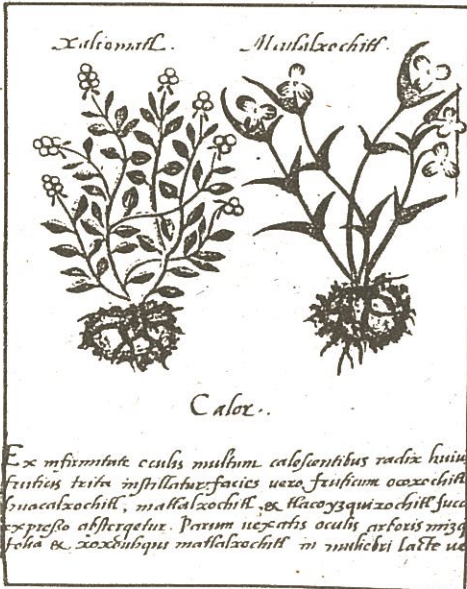 Xaltomatl. Matlalxochitl.
Calor..
Ex infirmitate oculis multum calescentibus radix huius
fruticis trita instillatur: facies vero fruticum ocoxochitl
huacalxochitl, matlalxochitl, & tlacoyzquixochitl succo
expresso abstergetur. Parum vexatis oculis arboris mizq
folia & xoxouhqui matlalxochitl in muliebri lacte ve